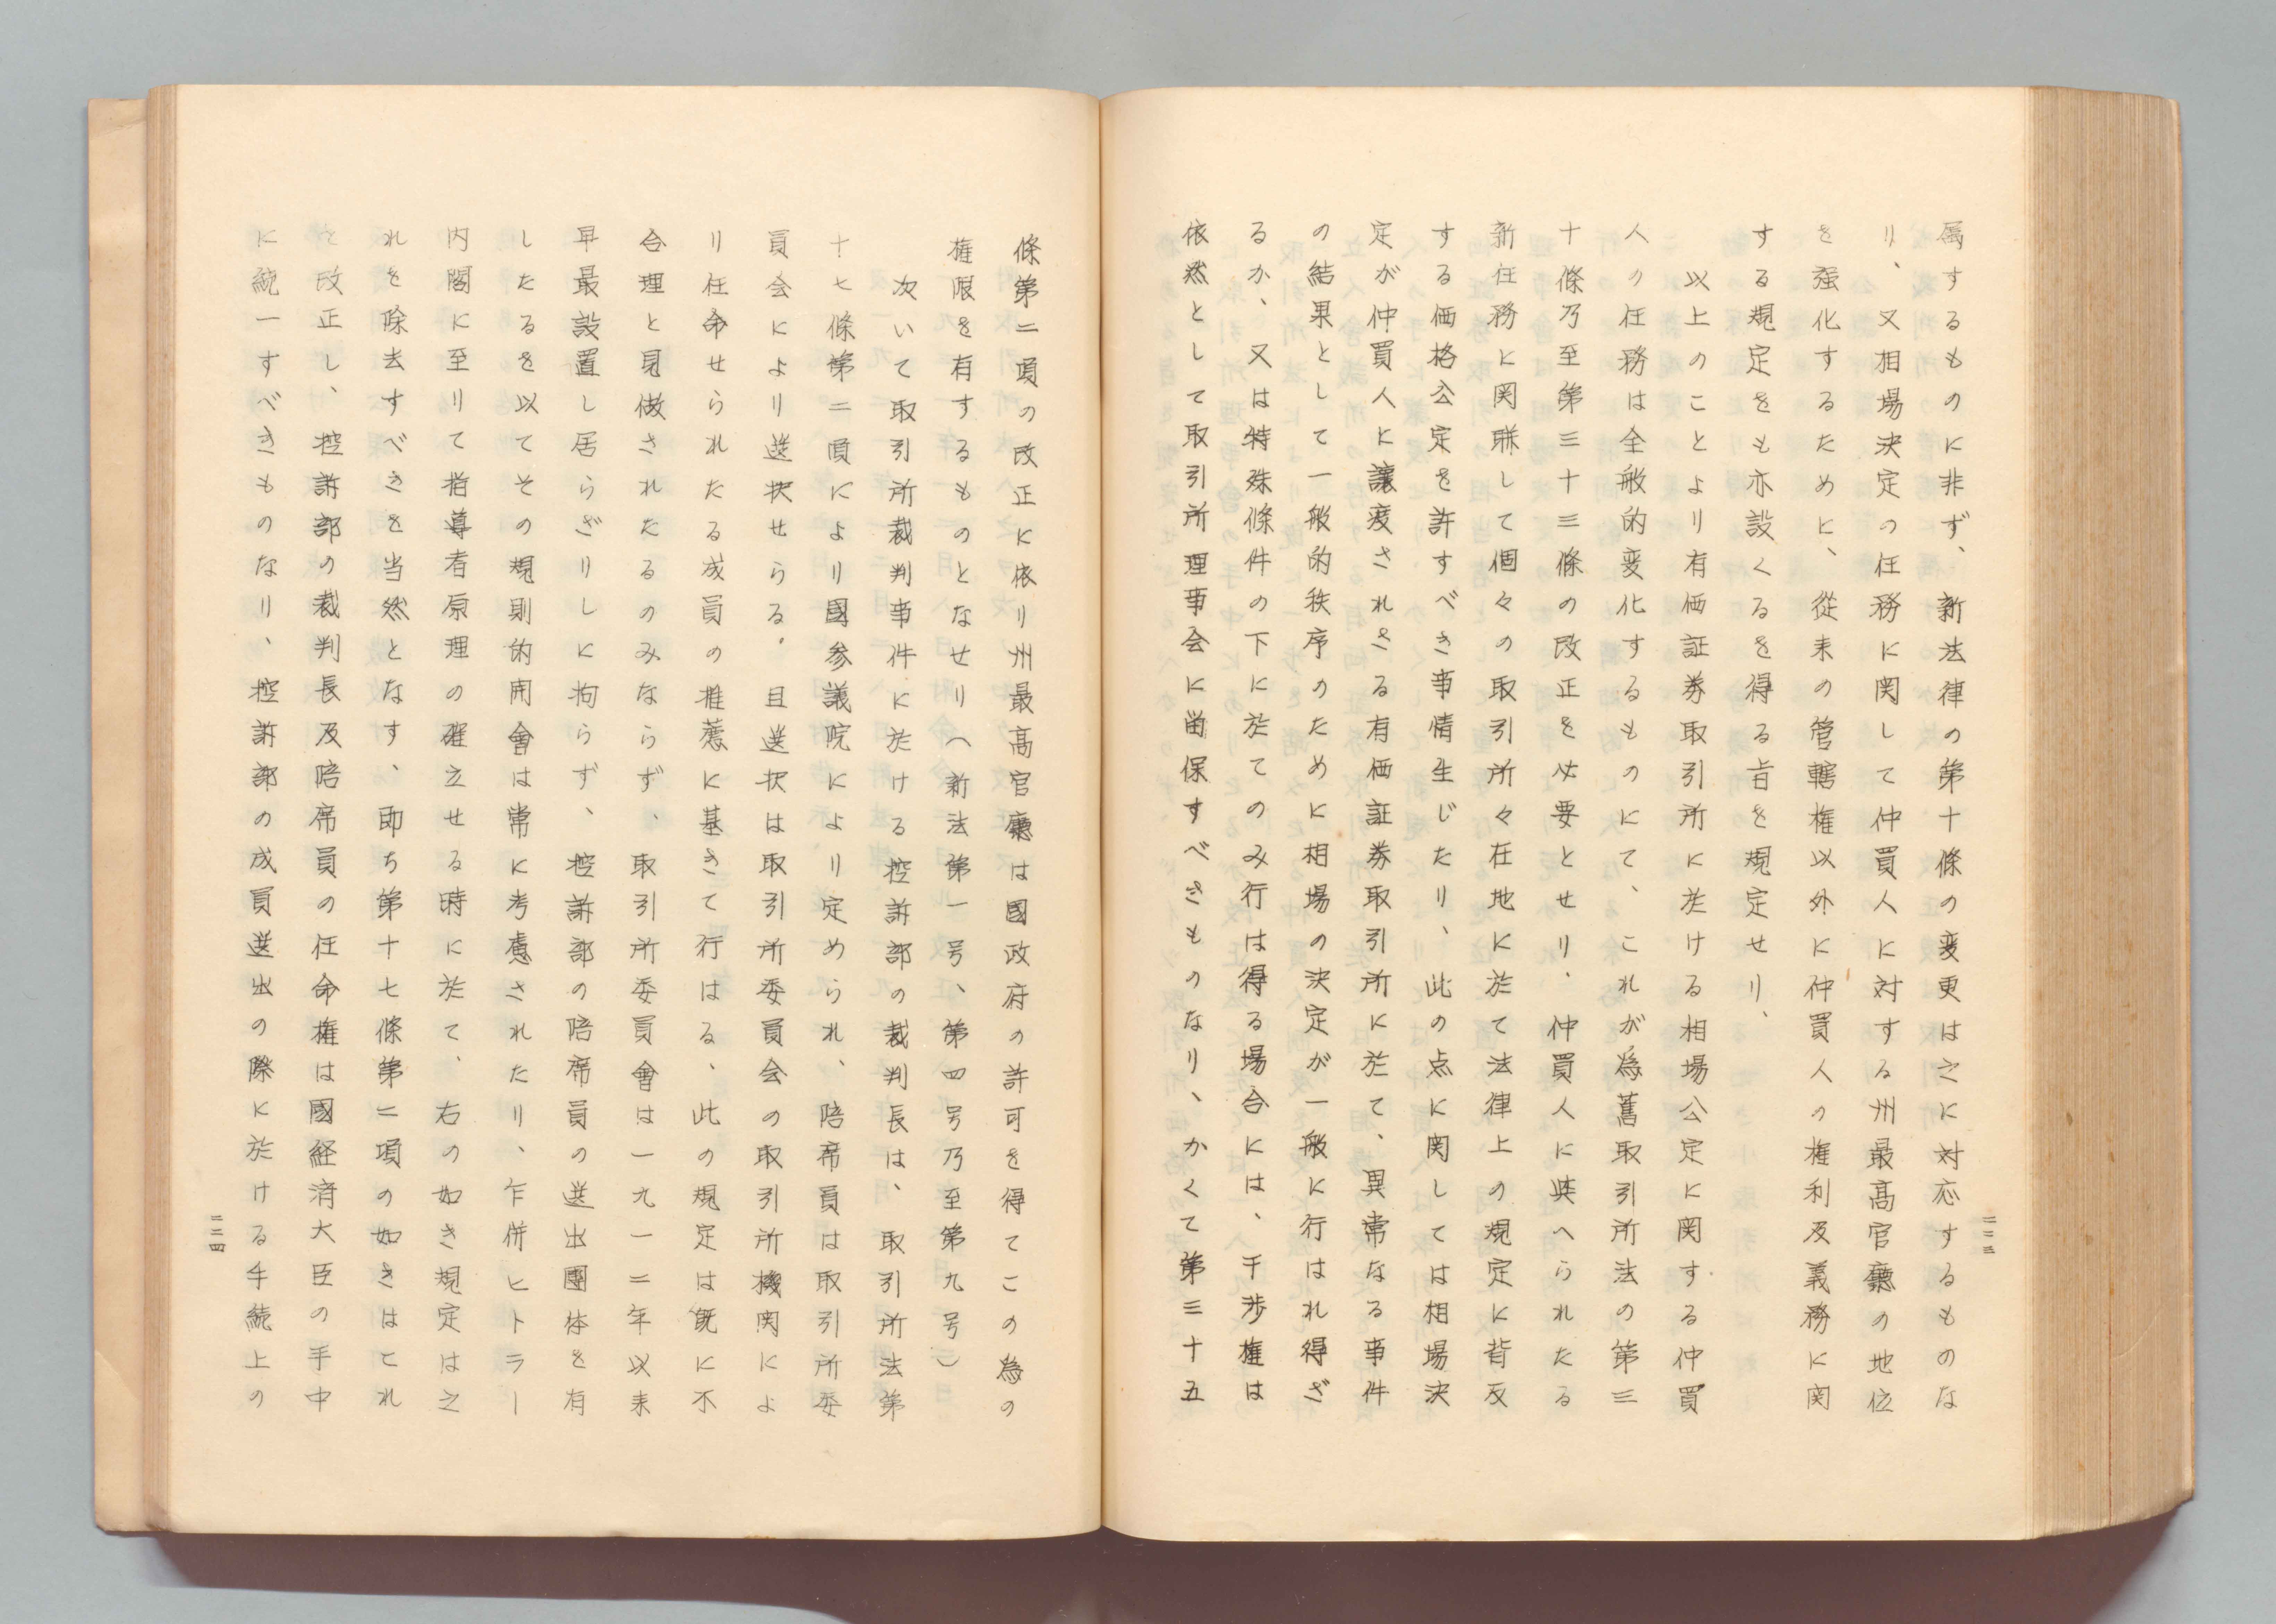 属するものに非ず、新法律の第十條の変更は之に対応するものな
り、又相場決定の任務に関して仲買人に対する州最高官廳の地位
を强化するために、從来の管轄権以外に仲買人の権利及義務に関
する規定をも亦設くるを得る旨を規定せり、
以上のことより有価証券取引所に於ける相場公定に関する仲買
人の任務は全般的変化するものにて、これが為舊取引所法の第三
十條乃至第三十三條の改正を必要とせり、仲買人に與へられたる
新任務に関聯して個々の取引所々在地に於て法律上の規定に背反
する価格公定を許すべき事情生じたり、此の点に関しては相場決
定が仲買人に讓渡されざる有価証券取引所に於て、異常なる事件
の結果として一般的秩序のために相場の決定が一般に行はれ得ざ
るか、又は特殊條件の下に於てのみ行は得る場合には、干渉権は
依然として取引所理事会に留保すべきものなり、かくて第三十五
二二三
條第二項の改正に依り州最高官廳は國政府の許可を得てこの為の
権限を有するものとなせり（新法第一号、第四号乃至第九号）
次いて取引所裁判事件に於ける控訴部の裁判長は、取引所法第
十七條第二項により國参議院により定められ、陪席員は取引所委
員会により選択せらる。且選択は取引所委員会の取引所機関によ
り任命せられたる成員の推薦に基きて行はる、此の規定は既に不
合理と見做されたるのみならず、取引所委員會は一九一二年以来
早最設置し居らざりしに拘らず、控訴部の陪席員の選出團体を有
したるを以てその規則的開會は常に考慮されたり、乍併ヒトラー
内閣に至りて指導者原理の確立せる時に於て、右の如き規定は之
れを除去すべきを当然となす、即ち第十七條第二項の如きはこれ
を改正し、控訴部の裁判長及陪席員の任命権は國経済大臣の手中
に統一すべきものなり、控訴部の成員選出の際に於ける手続上の
二二四